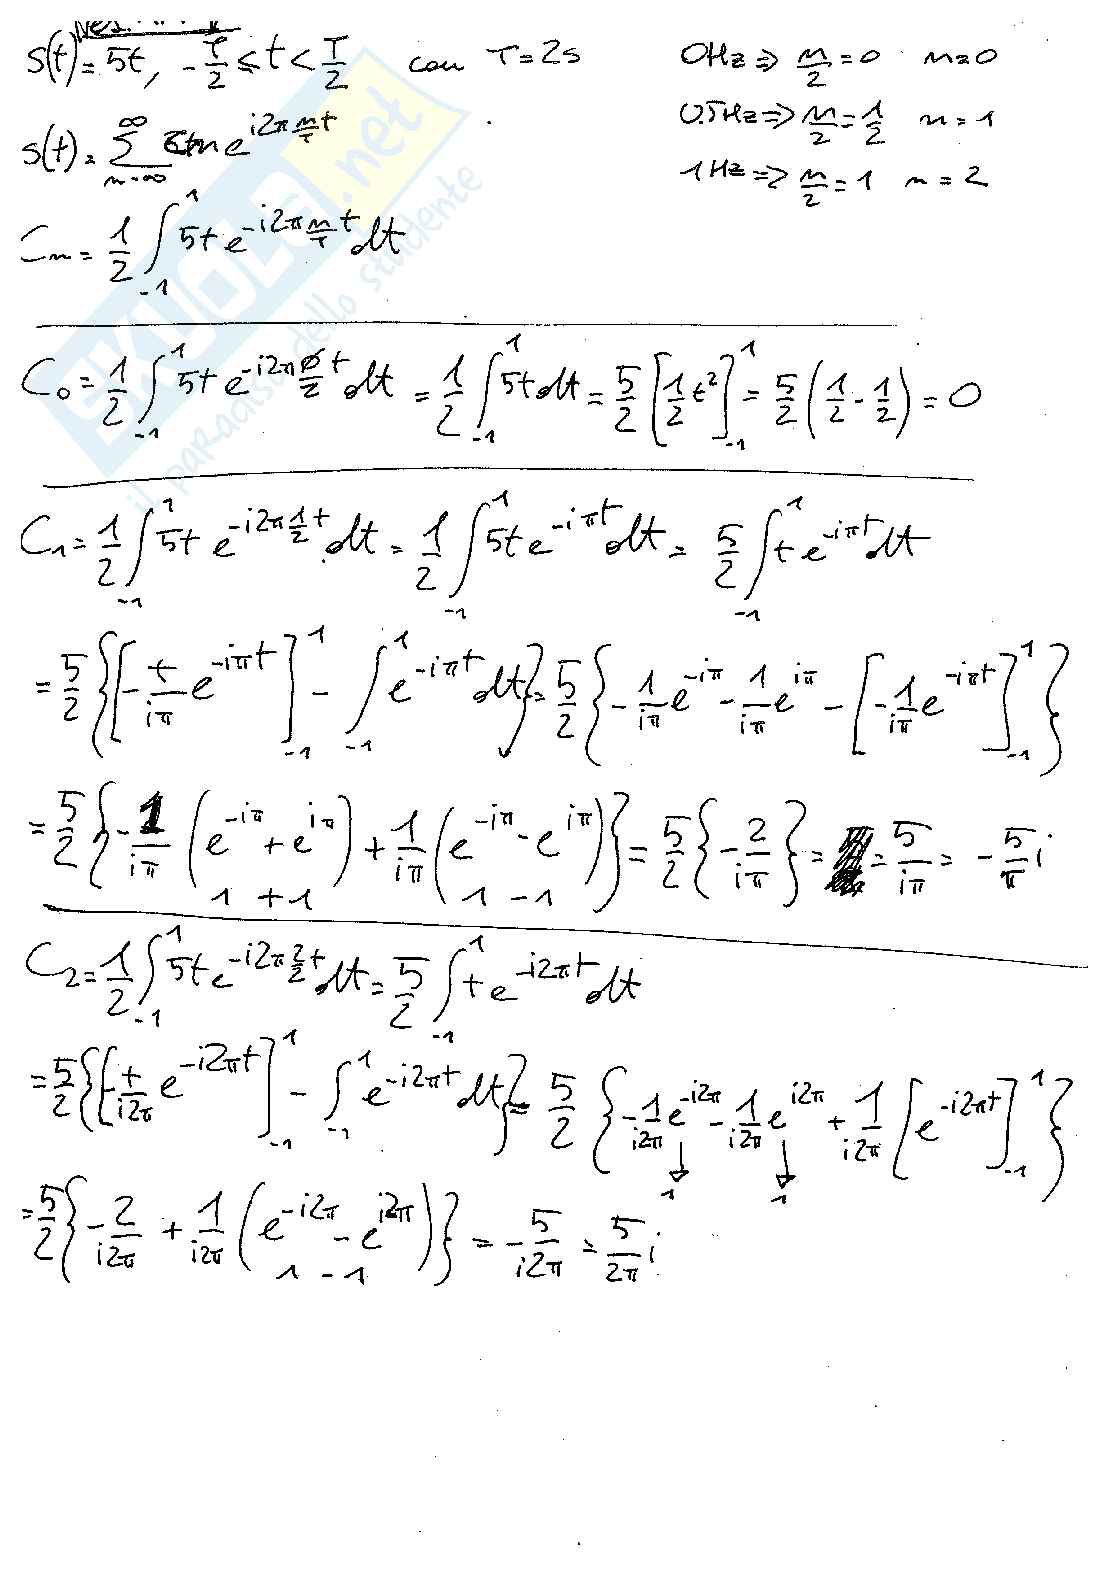 s(t) = 5t, -T/2 ≤ t < T/2 con T = 2s
0Hz => n/2 = 0 n = 0
0.5Hz => n/2 = 1/2 n = 1
1Hz => n/2 = 1 n = 2
s(t) = ∑_{n=-∞}^{∞} Cn e^{i2π n/T t}
C_n = 1/2 ∫_{-1}^{1} 5t e^{-i2π n/T t} dt
C_0 = 1/2 ∫_{-1}^{1} 5t e^{-i2π 0/2 t} dt = 1/2 ∫_{-1}^{1} 5t dt = 5/2 [1/2 t^2]_{-1}^{1} = 5/2 (1/2 - 1/2) = 0
C_1 = 1/2 ∫_{-1}^{1} 5t e^{-i2π 1/2 t} dt = 1/2 ∫_{-1}^{1} 5t e^{-iπt} dt = 5/2 ∫_{-1}^{1} t e^{-iπt} dt
= 5/2 {[-t/iπ e^{-iπt}]_{-1}^{1} - ∫_{-1}^{1} e^{-iπt} dt} = 5/2 {-1/iπ e^{-iπ} - 1/iπ e^{iπ} - [-1/iπ e^{-iπt}]_{-1}^{1}}
= 5/2 {-1/iπ (e^{-iπ} + e^{iπ}) + 1/iπ (e^{-iπ} - e^{iπ})} = 5/2 {-2/iπ} = = 5/iπ = -5/π i
1 + 1 1 - 1
C_2 = 1/2 ∫_{-1}^{1} 5t e^{-i2π 2/2 t} dt = 5/2 ∫_{-1}^{1} t e^{-i2πt} dt
= 5/2 {[-t/i2π e^{-i2πt}]_{-1}^{1} - ∫_{-1}^{1} e^{-i2πt} dt} = 5/2 {-1/i2π e^{-i2π} - 1/i2π e^{i2π} + 1/i2π [e^{-i2πt}]_{-1}^{1}}
1 1
= 5/2 {-2/i2π + 1/i2π (e^{-i2π} - e^{i2π})} = -5/i2π = 5/2π i
1 - 1
SKUOLA.net
il paradiso dello studente